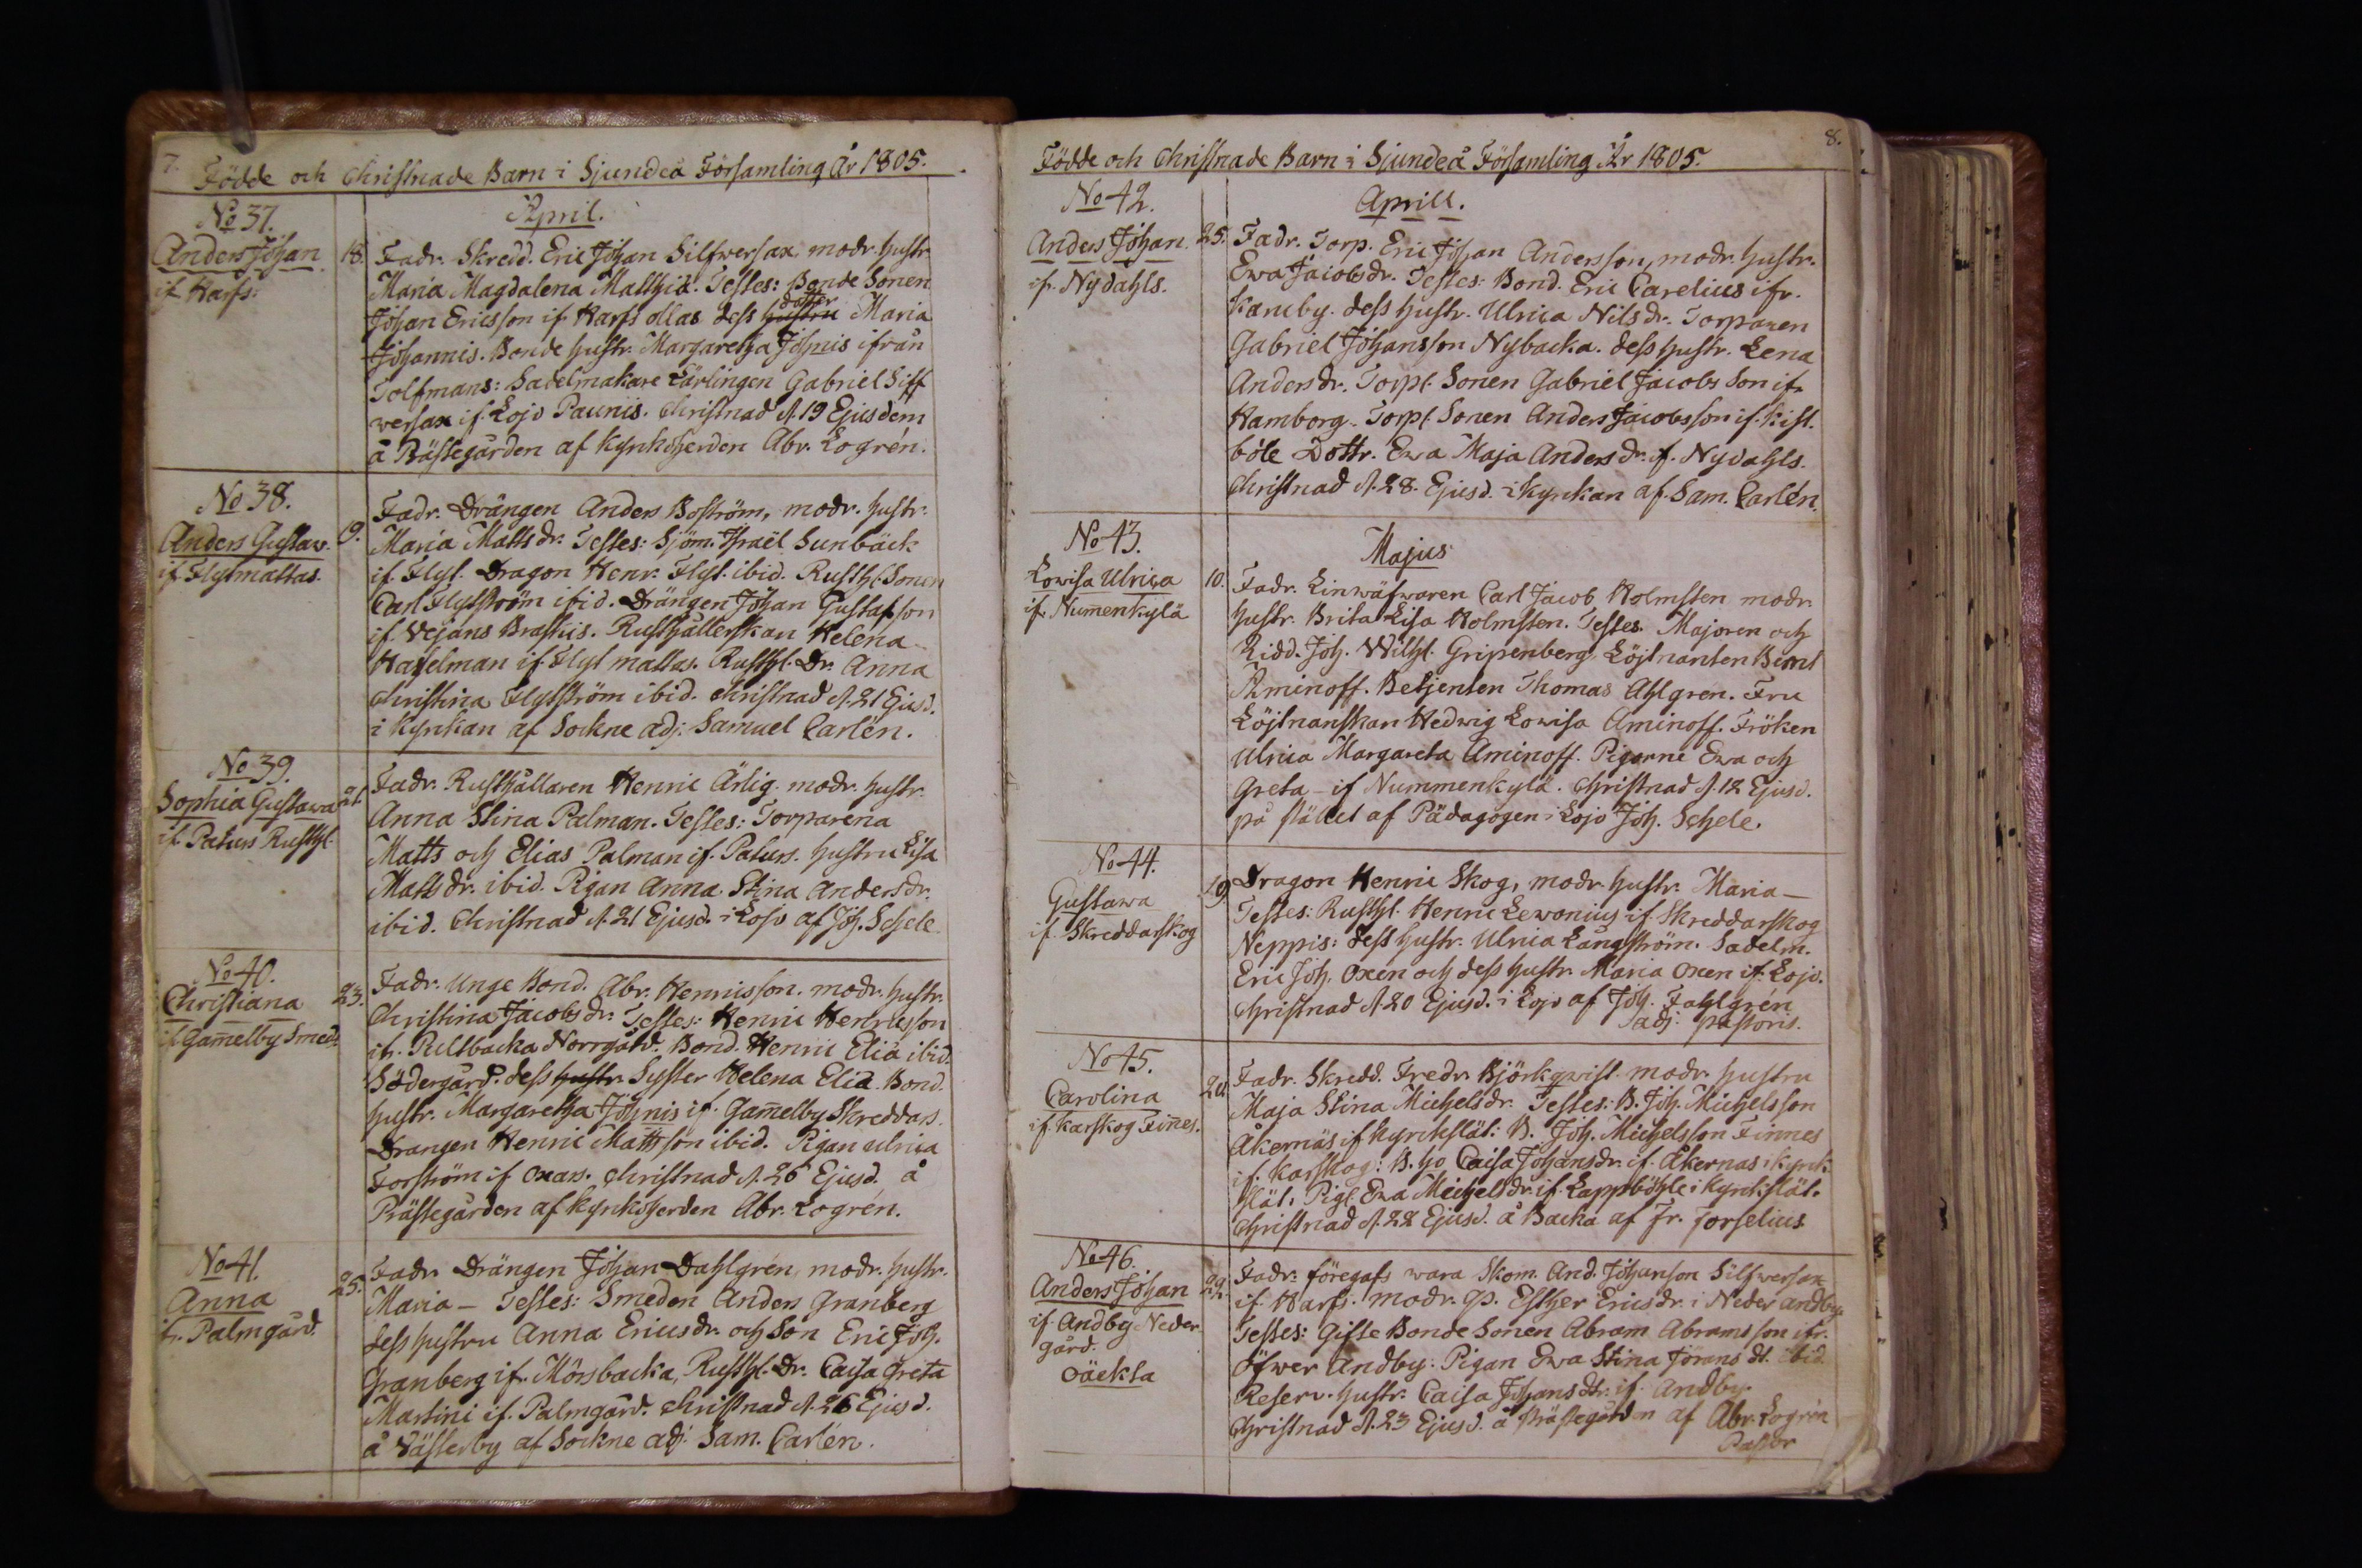 7.
Födde och Christnade Barn i Sjundeå Församling År 1805.
No 37.
April.
Anders Johan
if. Harfs:
18.
Fadr. Skredd. Eric Johan Silfwersax modr. hustr.
Maria Magdalena Matthiæ. Testes: Bonde Sonen
Johan Ericsson if Harfs ollas dess hustru dotter Maria
Johannis. Bonde hustr. Margaretha Johnis ifrån
Tolfmans: Sadelmakare Lärlingen Gabriel Silf
wersax if. Lojo Pauniis. Christnad d. 19 Ejusdem
å Prästegården af Kyrkoherden Abr. Logrén.
No 38.
Anders Gustav.
if. Flytmattas.
19.
Fadr. Drängen Anders Boström, modr. hustr.
Maria Matts dr. Testes: Sjöm. Israël Sunbäck
if. Flyt. Dragon Henr. Flyt. ibid. Rusth. Sonen
Carl Flytström ibid. Drängen Johan Gustafsson
if. Vejans Braskis. Rusthållerskan Helena
Haselman if. Flyt mattas. Rusthl. Dr. Anna
Christina Flytström ibid. Christnad d. 21 Ejusd.
i Kyrkan af Sockne adj: Samuel Carlén.
No 39.
Sophia Gustava
if. Paturs Rusthl.
21.
Fadr. Rusthållaren Henric Ärlig. modr. hustr.
Anna Stina Palman. Testes: Torparena
Matts och Elias Palman if. Paturs. hustru Lisa
Matts dr. ibid. Pigan Anna Stina Anders dr.
ibid. Christnad d. 21 Ejusd. i Lojo af Joh. Schele.
No 40.
Christiana
if Gamelby Smeds.
23.
Fadr. Unge Bond. Abr. Henrisson. modr. hustr.
Christina Jacobs dr. Testes: Henric Henricsson
if. Pultbacka Norrgård. Bond. Henric Eliæ ibid.
Södergård. dess hustr. Syster Helena Eliæ. Bond.
hustr. Margaretha Johnis if. Gamelby Skreddars.
Drangen Henric Mattsson ibid. Pigan Ulrica
Forström if Oxars. Christnad d. 26 Ejusd. å
Prästegården af Kyrkoherden Abr. Logrén.
No 41.
Anna
if. Palmgård.
25.
Fadr. Drängen Johan Dahlgrén, modr. hustr.
Maria – Testes: Smeden Anders Granberg
dess hustru Anna Erics dr. och Son Eric Joh.
Granberg if. Mörsbacka, Rusthl. Dr. Caisa Greta
Martini if. Palmgård. Christnad d. 26 Ejusd.
å Västerby af Sockne adj: Sam. Carlén.
8.
Födde och Christnade Barn i Sjundeå Församling År 1805.
No 42.
Aprill.
Anders Johan.
if. Nydahls.
25.
Fadr. Torp. Eric Johan Andersson, modr. hustr.
Ewa Jacobs dr. Testes: Bond. Eric Carelius ifr.
Karuby. dess hustr. Ulrica Nils dr. Torparen
Gabriel Johansson Nybacka. dess hustr. Lena
Anders dr. Torpl. Sonen Gabriel Jacobs Son ifr
Hamborg. Torpl. Sonen Anders Jacobsson if. Kist.
böle Dottr. Ewa Maja Anders dr. if. Nydahls.
Christnad d. 28. Ejusd. i Kyrkan af Sam. Carlén.
No 43.
Majus
Lowisa Ulrica
if. Numenkylä
10.
Fadr. Linwäfwaren Carl Jacob Holmsten modr.
hustr. Brita Lisa Holmsten. Testes. Majoren och
Ridd. Joh. Wilhl. Gripenberg Löjtnanten Bernt
Aminoff. Betjenten Thomas Ahlgren. Fru
Löjtnanskan Hedwig Lowisa Aminoff. Fröken
Ulrica Margareta Aminoff. Pigorne Ewa och
Greta – if Nummenkylä. Christnad d. 12 Ejusd.
på stället af Pädagogen i Lojo Joh. Schele.
No 44.
Gustawa
if. Skreddarskog
19
Dragon Henric Skog, modr. hustr. Maria –
Testes: Rusthl. Henric Lewonius if. Skreddarskog
Neppris: dess hustr. Ulrica Långström. Sadelm.
Eric Joh. Oxen och dess hustr. Maria Oxen if. Lojo.
Christnad d. 20 Ejusd. i Lojo af Joh. Fahlgrén
adj: pastoris.
No 45.
Carolina
if. Karskog Fines.
20.
Fadr. Skredd. Fredr. Björkqwist. modr. hustru
Maja Stina Michels dr. Testes: B. Joh. Michelsson
Åkernäs if Kyrkslät: B. Joh. Michelsson Finnes
if. Karskog: B. ho Caisa Johans dr. if. Åkernas i Kyrk
slät. Pigl. Ewa Michels dr. if. Lappböhle i Kyrkslät.
Christnad d. 22 Ejusd. å Backa af Fr. Forselius
No 46.
Anders Johan
if. Andby Neder
gård.
Oäckta
22.
Fadr. föregafs wara Skom. And. Johanson Silfwersax
if. Harfs. modr. qp. Esther Erics dr. i Neder andby.
Testes: Gifte Bonde Sonen Abram Abramsson ifr.
Öfwer Andby. Pigan Ewa Stina Jörans dt. ibid.
Reserv. hustr. Caisa Johans dtr. if. Andby.
Christnad d. 23 Ejusd. å Prästegården af Abr. Logrén
Pastor